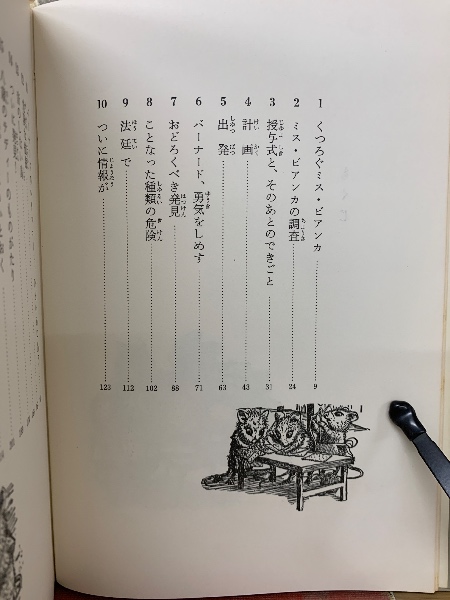 1 くつろぐミス・ビアンカ 9
2 ミス・ビアンカの調査 24
3 授与式と、そのあとのできごと 31
4 計画 43
5 出発 63
6 バーナード、勇気をしめす 71
7 おどろくべき発見 88
8 ことなった種類の危険 102
9 法廷で 112
10 ついに情報が 123